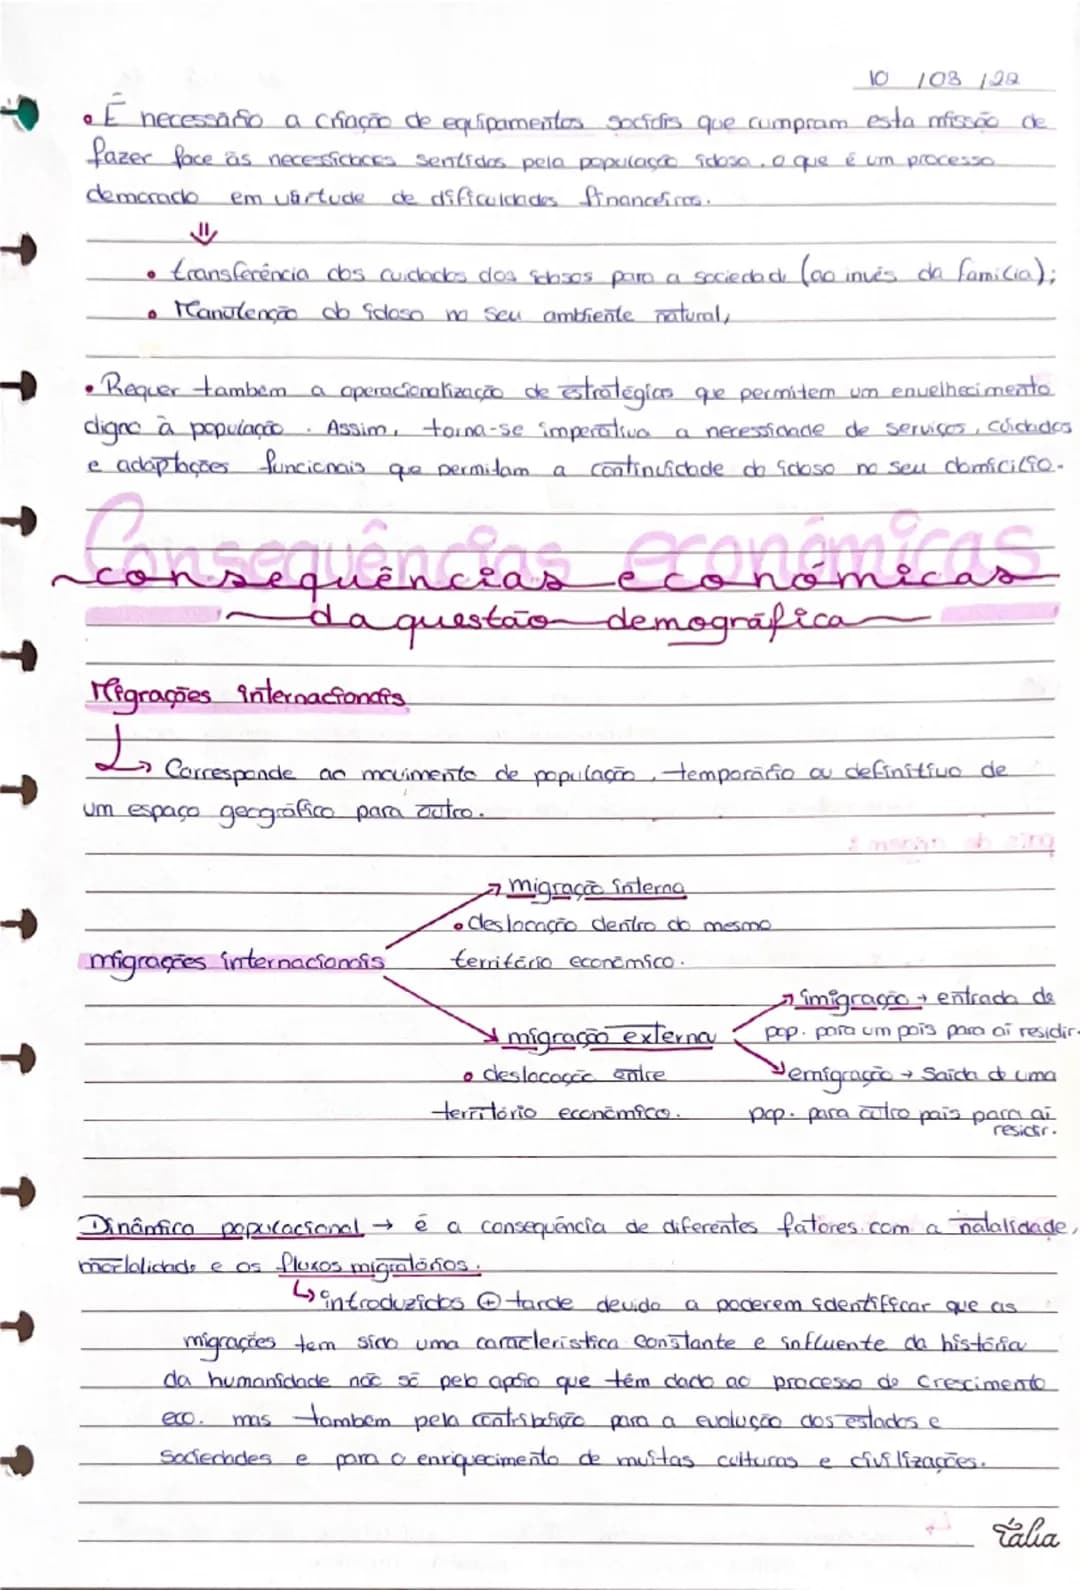 10 / 03 / 22
• É necessário a criação de equipamentos sociais que cumpram esta missão de
fazer face às necessidades sentidas pela população idosa, o que é um processo
demorado em virtude de dificuldades financeiras.
⇓
• transferência dos cuidados dos idosos para a sociedade (ao invés da família);
• Manutenção do idoso no seu ambiente natural,
• Requer também a operacionalização de estratégias que permitem um envelhecimento
digno à população. Assim, torna-se imperativa a necessidade de serviços, cuidados
e adaptações funcionais que permitam a continuidade do idoso no seu domicílio.
Consequências económicas
consequências económicas
da questão demográfica
Migrações internacionais
↳ Corresponde ao movimento de população, temporário ou definitivo de
um espaço geográfico para outro.
↗ migração interna
• deslocação dentro do mesmo
migrações internacionais território económico.
↗ imigração → entrada de
↘ migração externa pop. para um país para aí residir.
• deslocação entre ↘ emigração → Saída de uma
território económico. pop. para outro país para aí
residir.
Dinâmica populacional → é a consequência de diferentes fatores com a natalidade,
mortalidade e os fluxos migratórios.
↳ introduzidos ⊕ tarde devido a poderem identificar que as
migrações tem sido uma característica constante e influente da história
da humanidade não só pelo apoio que têm dado ao processo de crescimento
eco. mas também pela contribuição para a evolução dos estados e
sociedades e para o enriquecimento de muitas culturas e civilizações.
Tália